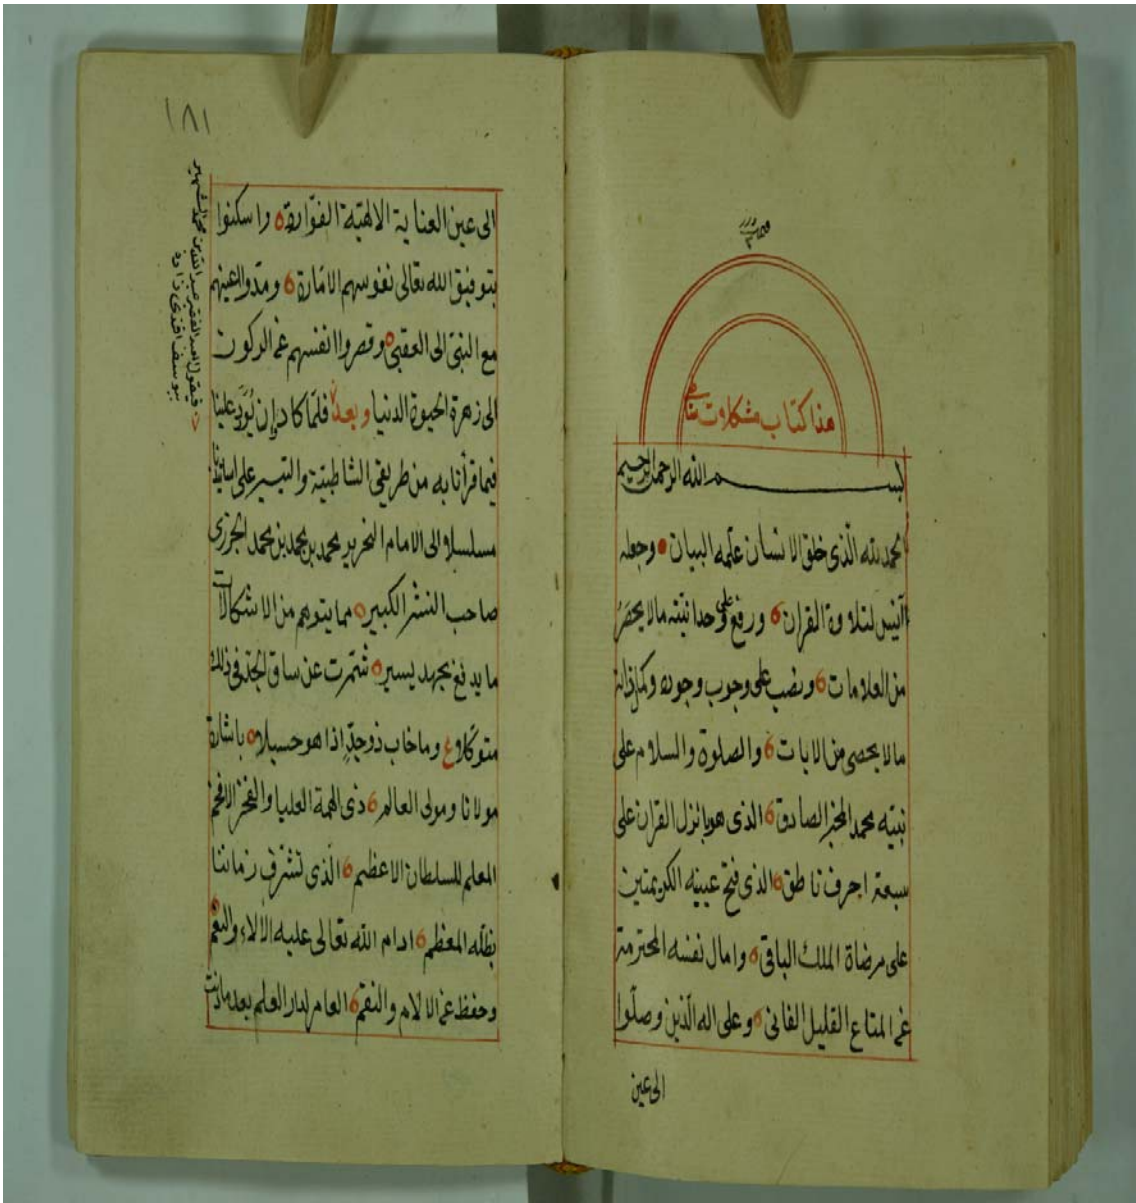 هذا كتاب مشكلات
بسم الله الرحمن الرحيم
الحمد لله الذى خلق الانسان علمه البيان وجعله
آنيس لتلاوة القران ورفع على وحدانيته مالا يحصر
من العلامات ونصب على وجوب وجوده وكمال ذاته
مالا يحصى من الايات والصلوة والسلام على
نبيه محمد المخبر الصادق الذى هو بانزل القران على
سبعة احرف ناطق الذى فتح عينيه الكريمتين
على مرضاة الملك الباقى وامال نفسه المحترمة
عن المتاع القليل الفانى وعلى اله الذين وصلوا
الى عين
١٨١
الى عين العناية الالهية الفوارة واسكنوا
بتوفيق الله تعالى نفوسهم الامارة ومدوا اعينهم
مع البنى الى العقبى وقصروا انفسهم عن الركون
الى زهرة الحيوة الدنيا وبعد فلما كاد ان يؤد علينا
فيما قرأنا به من طريقى الشاطبية والتيسير على
مسلسلا الى الامام النحرير محمد بن محمد بن محمد الجزرى
صاحب النشر الكبير مما يتوهم من الاشكالات
ما يدفع بجهد يسير شمرت عن ساق الجد فى ذلك
متوكلا وما خاب ذو جد اذا هو حسبلا باشارة
مولانا ومولى العالم ذى الهمة العليا والفخر الافخم
المعلم للسلطان الاعظم الذى تشرف زماننا
بظله المعظم ادام الله تعالى عليه الآلاء والنعم
وحفظ عن الالام والنقم العامر لدار العلم بعد ما
فيقول العبد الفقير عبد الله بن محمد الشهير
بيوسف افندى زاده